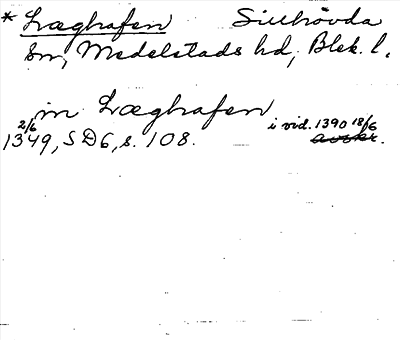 * Læghafen Sillhövda
sn, Medelstads hd, Blek. l.
in Læghafen
2/6 1349, SD6, s. 108. i vid. 1390 18/6 avskr.